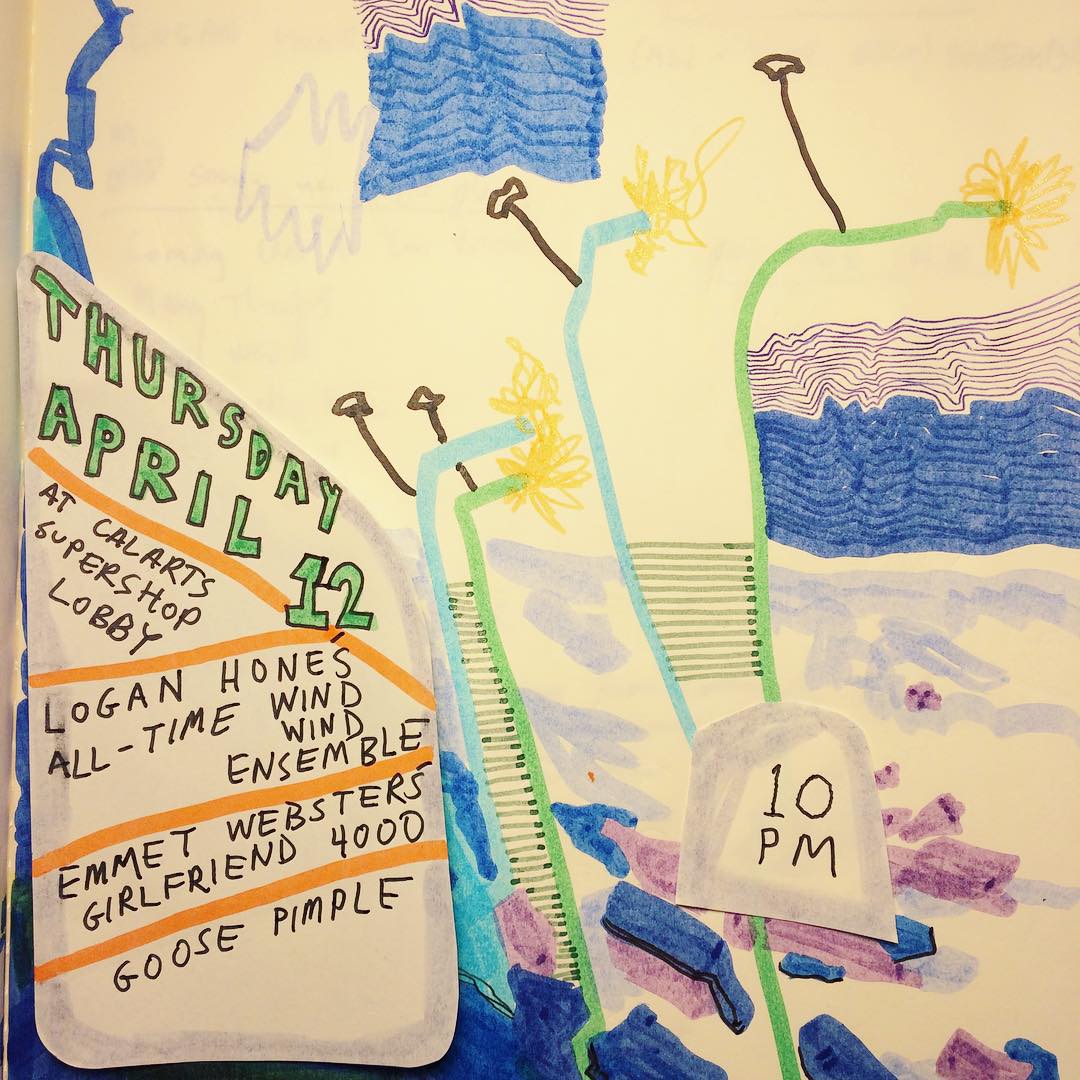 THURSDAY
APRIL
12
AT CALARTS
SUPERSHOP
LOBBY
LOGAN HONE'S
ALL-TIME WIND
WIND
ENSEMBLE
EMMET WEBSTERS'
GIRLFRIEND 4000
GOOSE PIMPLE
10
PM